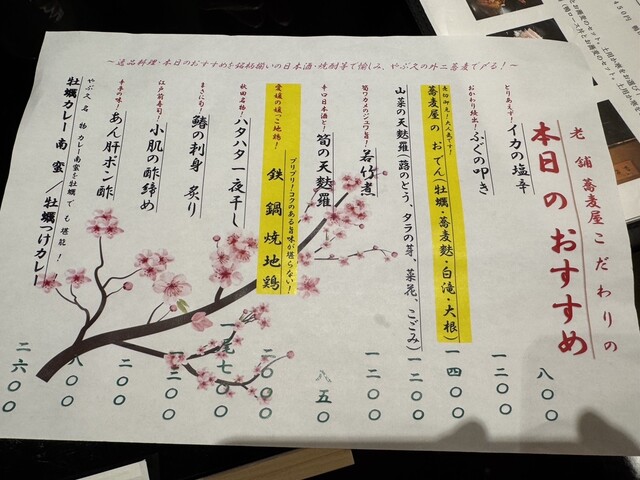 老舗蕎麦屋こだわりの
本日のおすすめ
～逸品料理・本日のおすすめを銘柄揃いの日本酒・焼酎等で愉しみ、やぶ久の外二蕎麦で〆る！～
とりあえず！
イカの塩辛
八〇〇
おかわり続出！
ふぐの叩き
一二〇〇
売切御免！大人気です！
蕎麦屋のおでん(牡蠣・蕎麦麩・白滝・大根)
一四〇〇
山菜の天麩羅(蕗のとう、タラの芽、菜花、こごみ)
一二〇〇
筍ワカメのジュワ旨！
若竹煮
一二〇〇
辛口日本酒と！
筍の天麩羅
八五〇
愛媛の媛っこ地鶏！
プリプリ！コクのある旨味が堪らない！
鉄鍋焼地鶏
二〇〇〇
秋田名物！
ハタハタ一夜干し
一尾七〇〇
まさに旬！
鰆の利身 炙り
江戸前寿司！
小肌の酢締め
一二〇〇
千年の味！
あん肝ポン酢
一二〇〇
やぶ久名物カレー南蛮を牡蠣でも堪能！
牡蠣カレー南蛮／牡蠣つけカレー
二六〇〇